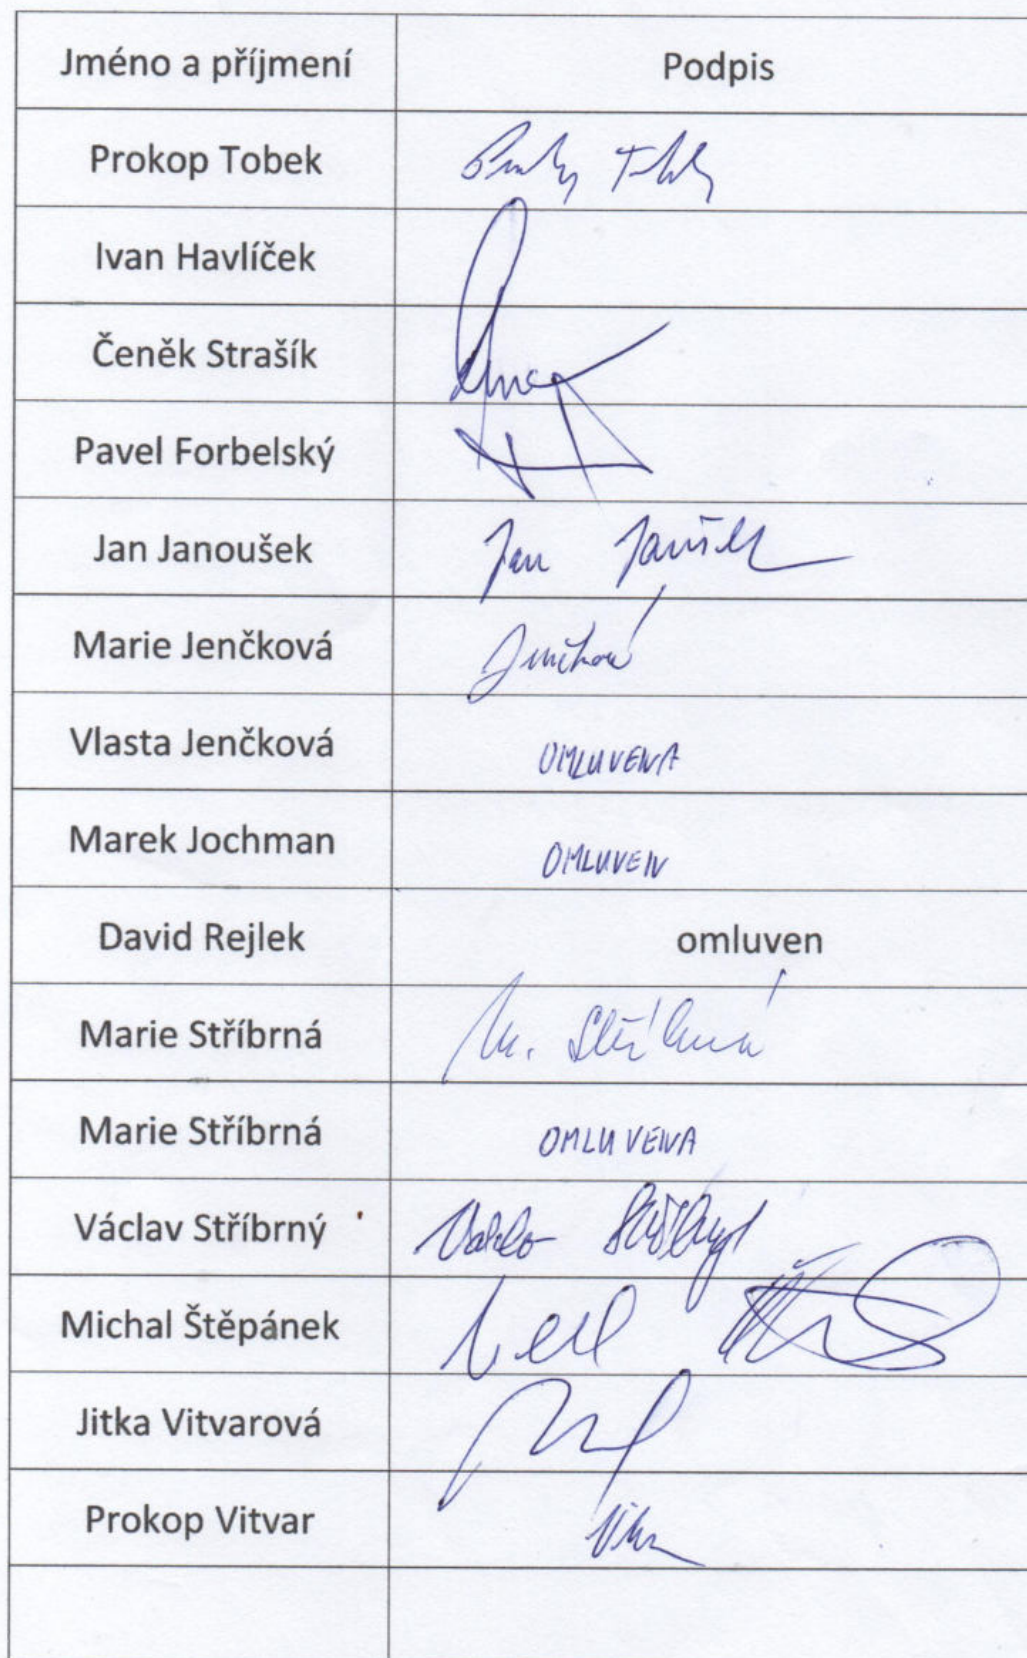 Jméno a příjmení Podpis
Prokop Tobek
Ivan Havlíček
Čeněk Strašík
Pavel Forbelský
Jan Janoušek Jan
Marie Jenčková
Vlasta Jenčková OMLUVENA
Marek Jochman OMLUVEN
David Rejlek omluven
Marie Stříbrná M.
Marie Stříbrná OMLUVENA
Václav Stříbrný
Michal Štěpánek
Jitka Vitvarová
Prokop Vitvar